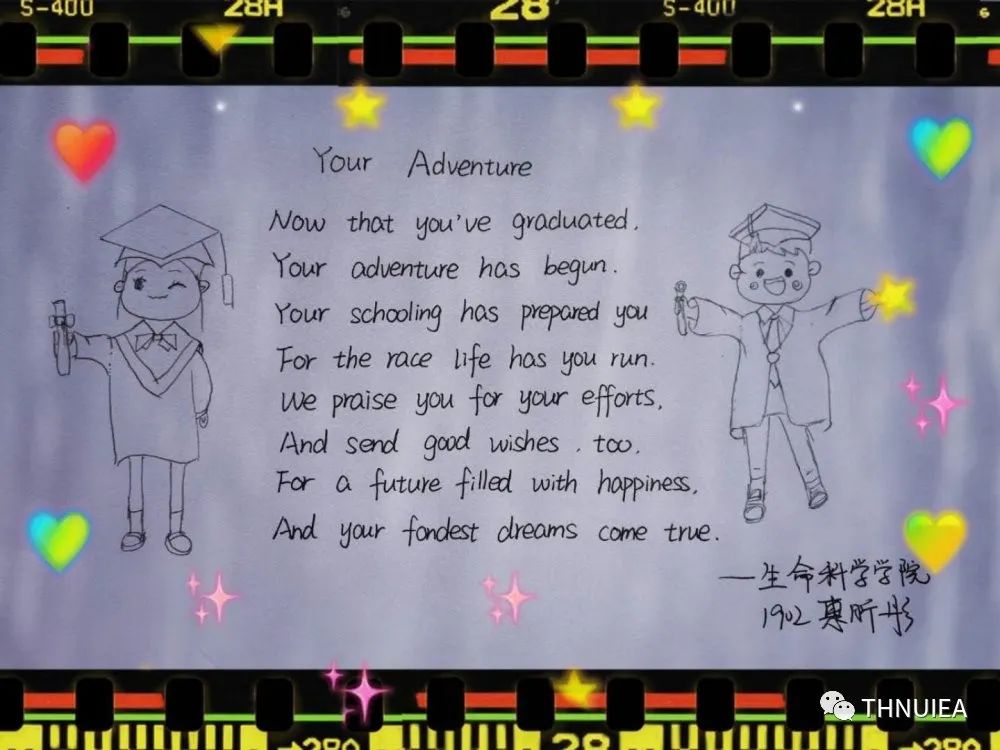 S-400 28H 28 S-400 28H
Your Adventure
Now that you've graduated.
Your adventure has begun.
Your schooling has prepared you
For the race life has you run.
We praise you for your efforts,
And send good wishes , too.
For a future filled with happiness,
And your fondest dreams come true.
—生命科学学院
1902 惠昕彤
THNUIEA
→280 28